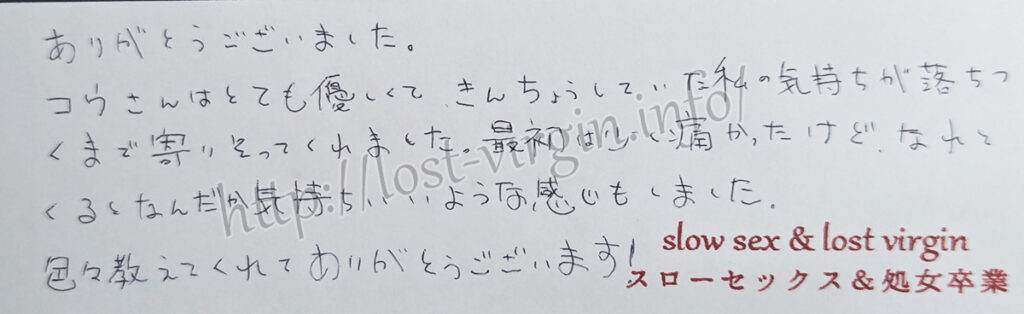 ありがとうございました。
コウさんはとても優しくて、きんちょうしていた私の気持ちが落ちつ
くまで寄りそってくれました。最初は少し痛かったけど、なれて
くるとなんだか気持ちいいような感じもしました。
色々教えてくれてありがとうございます!
http://lost-virgin.info/
slow sex & lost virgin
スローセックス&処女卒業